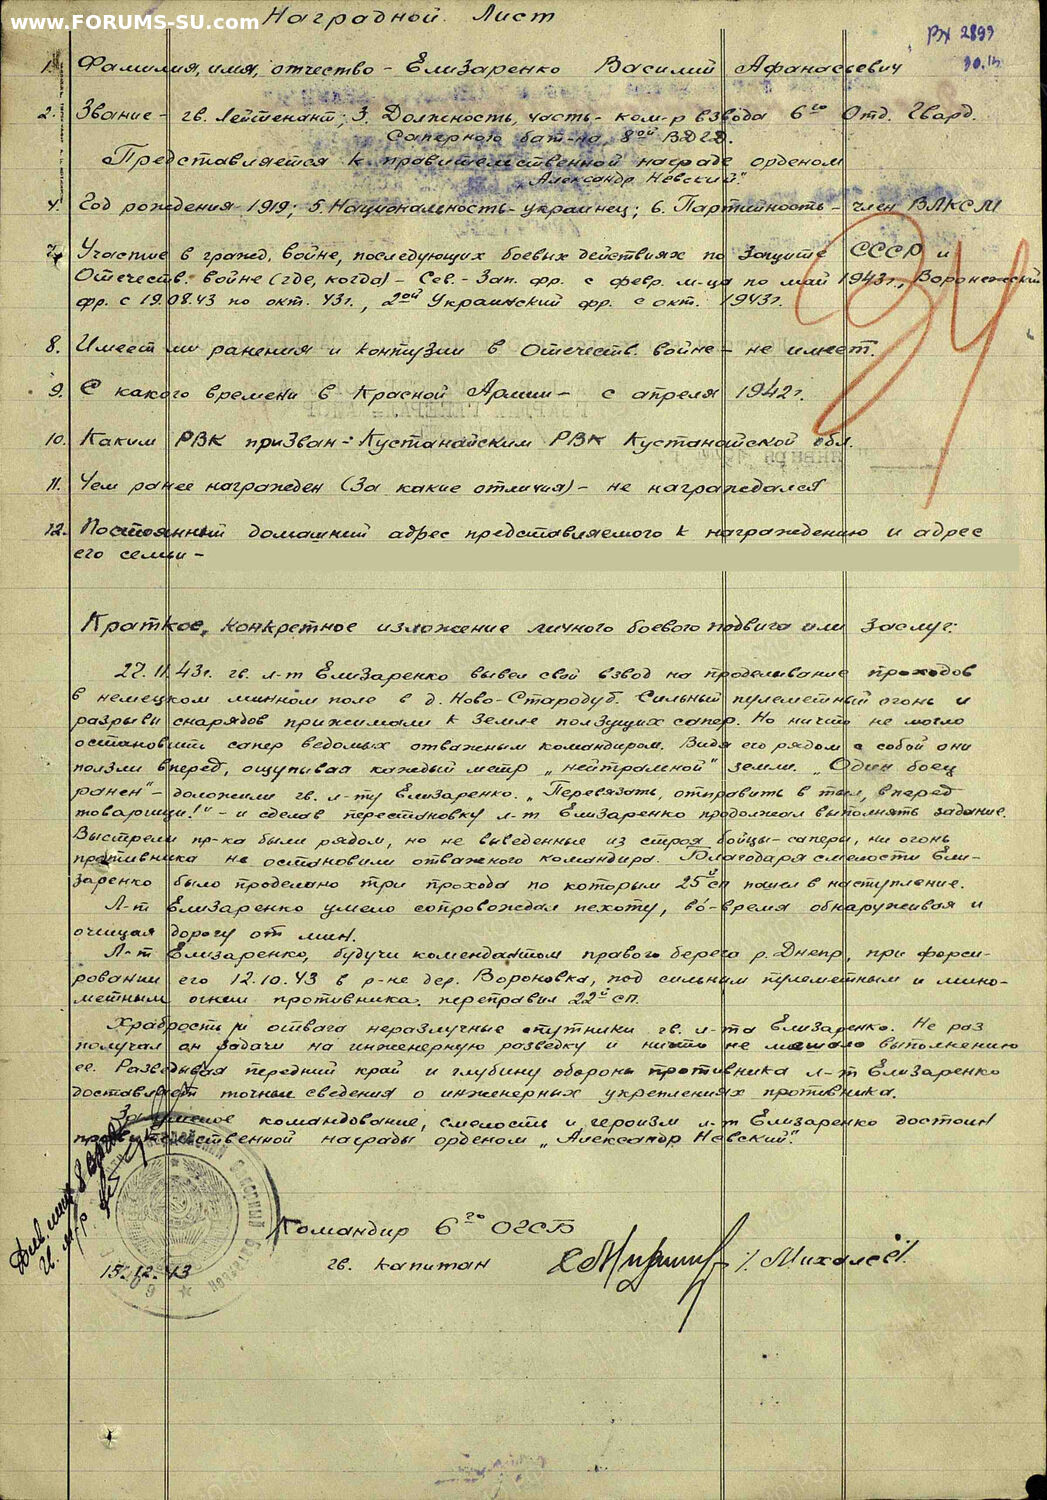 www.FORUMS-SU.com
Наградной Лист
Вх 2899
1. Фамилия, имя, отчество - Елизаренко Василий Афанасьевич
2. Звание - гв. лейтенант; 3. Должность, часть - ком-р взвода 6го Отд. Гвард.
Саперного бат-на, 8ой ВДГД.
Представляется к правительственной награде орденом
„Александр Невский."
4. Год рождения - 1919; 5. Национальность - украинец; 6. Партийность - член ВЛКСМ
7. Участие в гражд. войне, последующих боевых действиях по защите СССР и
Отечеств. войне (где, когда) - Сев.-Зап. фр. с февр. м-ца по май 1943г., Воронежский
фр. с 19.08.43 по окт. 43г., 2ой Украинский фр. с окт. 1943г.
8. Имеет ли ранения и контузии в Отечеств. войне - не имеет.
9. С какого времени в Красной Армии - с апреля 1942г.
10. Каким РВК призван - Кустанайским РВК Кустанайской обл.
11. Чем ранее награжден (за какие отличия) - не награждался
12. Постоянный домашний адрес представляемого к награждению и адрес
его семьи -
Краткое, конкретное изложение личного боевого подвига или заслуг:
27.11.43г. гв. л-т Елизаренко вывел свой взвод на проделывание проходов
в немецком минном поле в д. Ново-Стародуб. Сильный пулеметный огонь и
разрывы снарядов прижимали к земле ползущих сапер. Но ничто не могло
остановить сапер ведомых отважным командиром. Видя его рядом с собой они
ползли вперед, ощупывая каждый метр „нейтральной" земли. „Один боец
ранен" - доложили гв. л-ту Елизаренко. „Перевязать, отправить в тыл, вперед
товарищи!" - и сделав перестановку л-т Елизаренко продолжал выполнять задание.
Выстрелы пр-ка были рядом, но не выведенные из строя бойцы-саперы, ни огонь
противника не остановили отважного командира. Благодаря смелости Ели-
заренко было проделано три прохода по которым 25й сп пошел в наступление.
Л-т Елизаренко умело сопровождал пехоту, во-время обнаруживая и
очищая дорогу от мин.
Л-т Елизаренко, будучи комендантом правого берега р. Днепр, при форси-
ровании его 12.10.43 в р-не дер. Вороновка, под сильным пулеметным и мино-
метным огнем противника, переправил 22й сп.
Храбрость и отвага неразлучные спутники гв. л-та Елизаренко. Не раз
получал он задачи на инженерную разведку и ничто не мешало выполнению
ее. Разведывая передний край и глубину обороны противника л-т Елизаренко
доставляет точные сведения о инженерных укреплениях противника.
За умелое командование, смелость и героизм л-т Елизаренко достоин
правительственной награды орденом „Александр Невский."
Командир 6го ОГСБ
гв. капитан / Михалёв /.
15.12.43